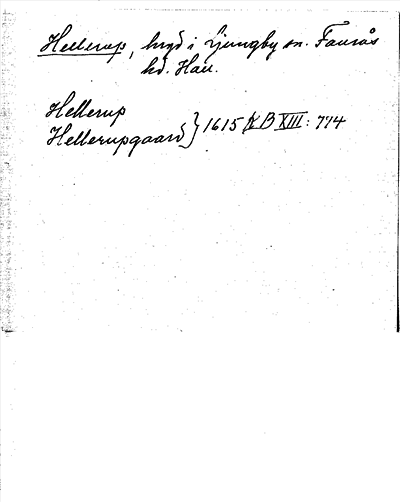 Hellerup, bygd i Ljungby sn. Faurås
hd. Hall.
Hellerup
Hellerupgaard } 1615 KB XIII: 774